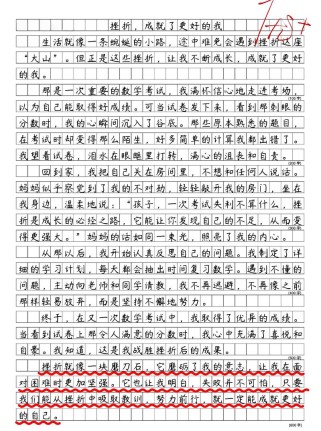 挫折，成就了更好的我
生活就像一条蜿蜒的小路，途中难免会遇到挫折这座
“大山”。但正是这些挫折，让我不断成长，成就了更好
的我。
那是一次重要的数学考试，我满怀信心地走进考场，
以为自己能取得好成绩。可当试卷发下来，看到那刺眼的
分数时，我的心瞬间沉入了谷底。那些原本熟悉的题目，
在考试时却变得那么陌生，好多简单的计算我都出错了。
我望着试卷，泪水在眼眶里打转，满心的沮丧和自责。
回到家，我把自己关在房间里，不想和任何人说话。
妈妈似乎察觉到了我的不对劲，轻轻敲开我的房门，坐在
我身边，温柔地说：“孩子，一次考试失利不算什么，挫
折是成长的必经之路，它能让你发现自己的不足，从而变
得更强大。”妈妈的话如同一束光，照亮了我的内心。
从那以后，我开始认真反思自己的问题。我制定了详
细的学习计划，每天都会抽出时间复习数学。遇到不懂的
问题，主动向老师和同学请教，我不再逃避，不再像之前
那样轻易放弃，而是坚持不懈地努力。
终于，在又一次数学考试中，我取得了优异的成绩。
当看到试卷上那令人满意的分数时，我心中充满了喜悦和
自豪。我知道，这是我战胜挫折后的成果。
挫折就像一块磨刀石，它磨砺了我的意志，让我在面
对困难时更加坚强。它也让我明白，失败并不可怕，只要
我们能从挫折中吸取教训，努力前行，就一定能成就更好
的自己。